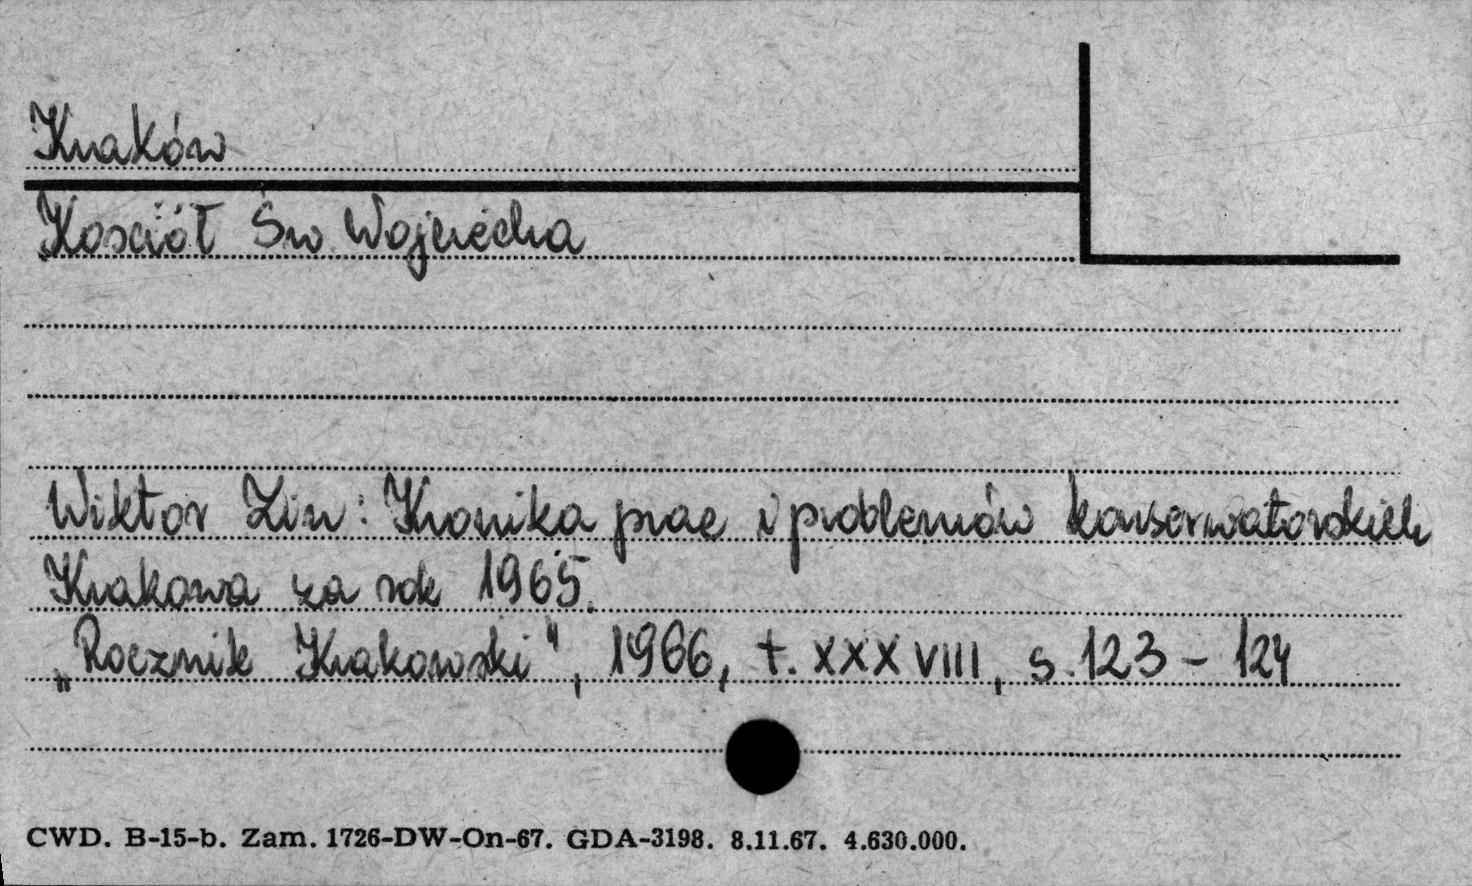 Kraków
Kościół Św. Wojciecha
Wiktor Zin: Kronika prac i problemów konserwatorskich
Krakowa za rok 1965.
„Rocznik Krakowski", 1966, t. XXXVIII, s. 123 - 124
CWD. B-15-b. Zam. 1726-DW-On-67. GDA-3198. 8.11.67. 4.630.000.